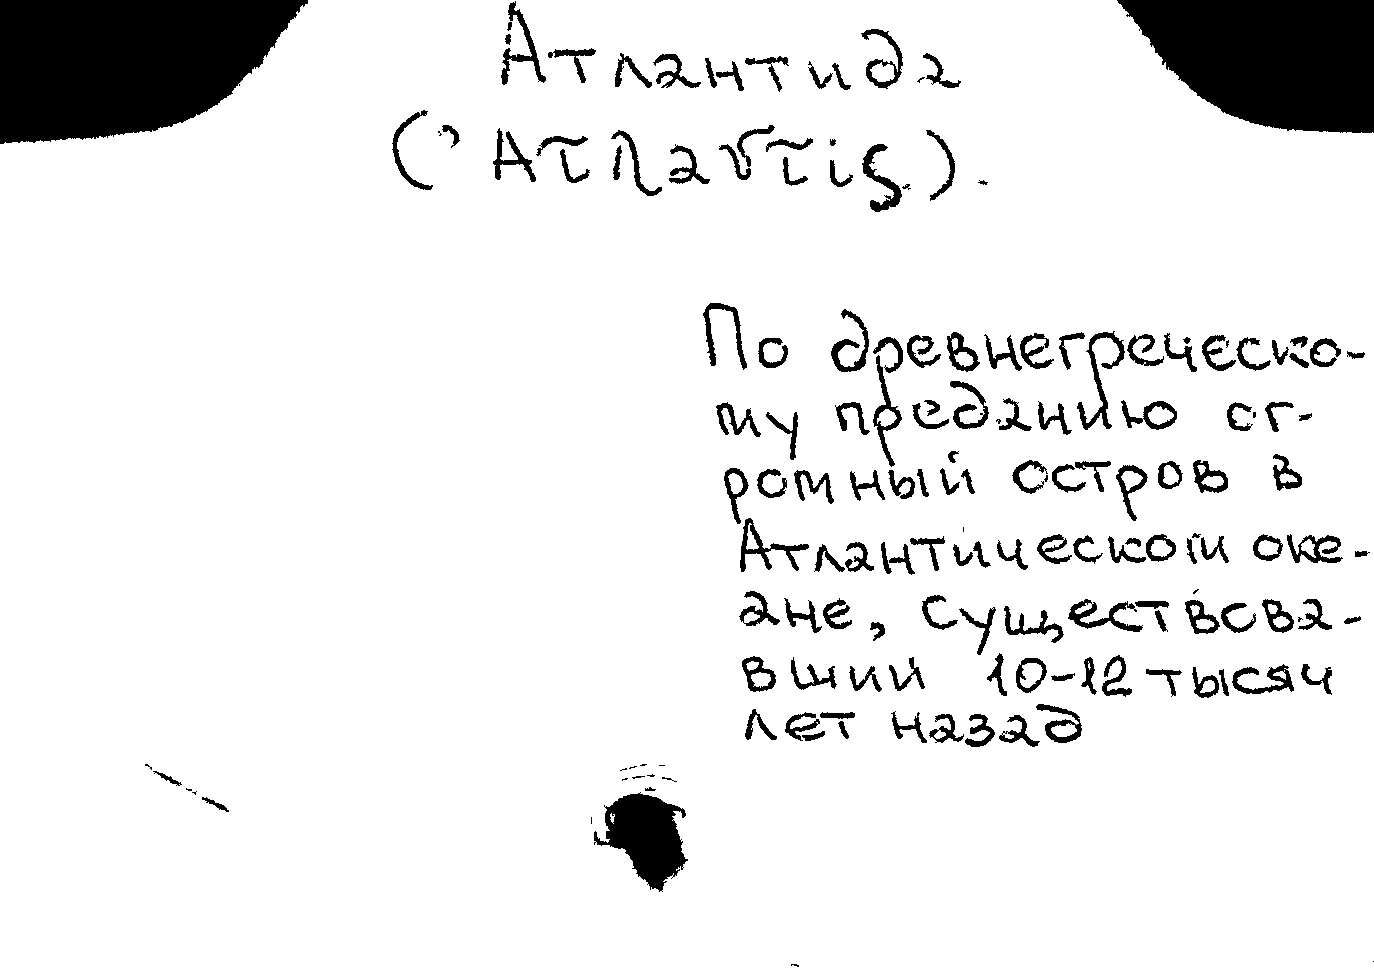 Атлантида
(Ἀτλαντίς).
По древнегреческо-
му преданию ог-
ромный остров в
Атлантическом оке-
ане, существова-
вший 10-12 тысяч
лет назад